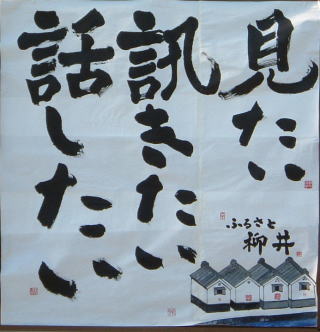 見たい
訊きたい
話したい
ふるさと
柳井